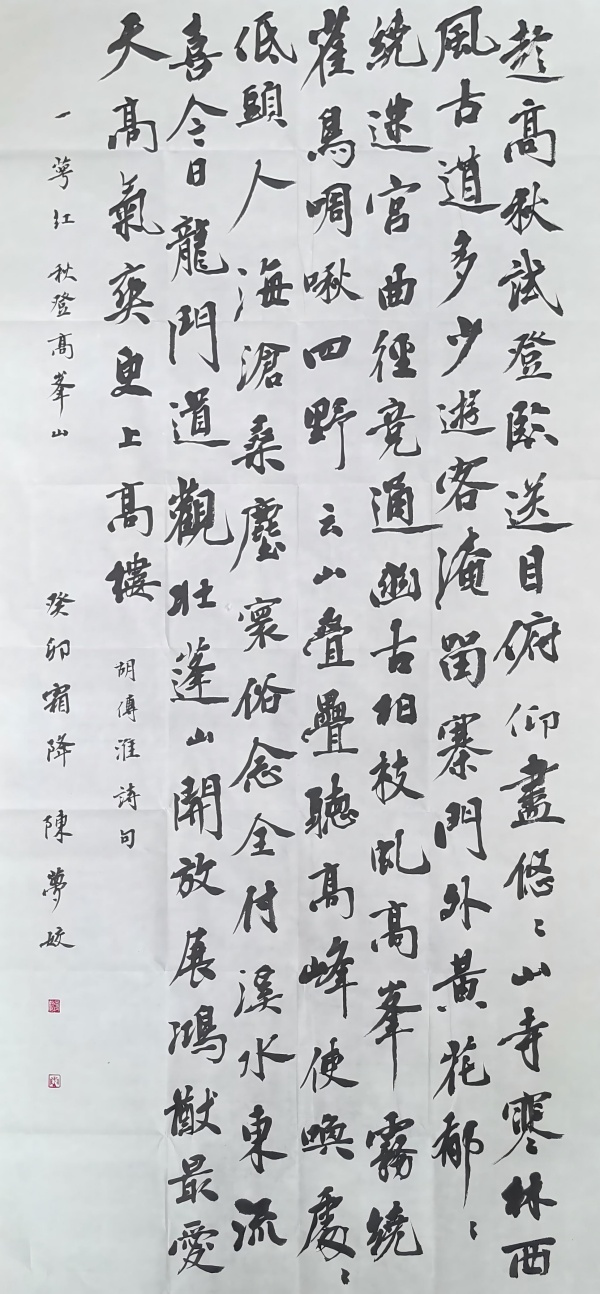 趁高秋試登臨送目俯仰盡悠〻山寺寒林西
風古道多少遊客淹留寨門外黃花郁〻
繞迷宮曲徑竞通幽古柏枝虬高峯霧繞
雀鳥啁啾四野云山叠疊聽高峰使喚處〻
低頭人海滄桑塵寰俗念全付溪水東流
喜今日龍門道觀壮蓬山開放展鴻猷最愛
天高氣爽更上高樓 胡傳淮詩句
一萼红 秋登高峯山 癸卯霜降 陳夢姣